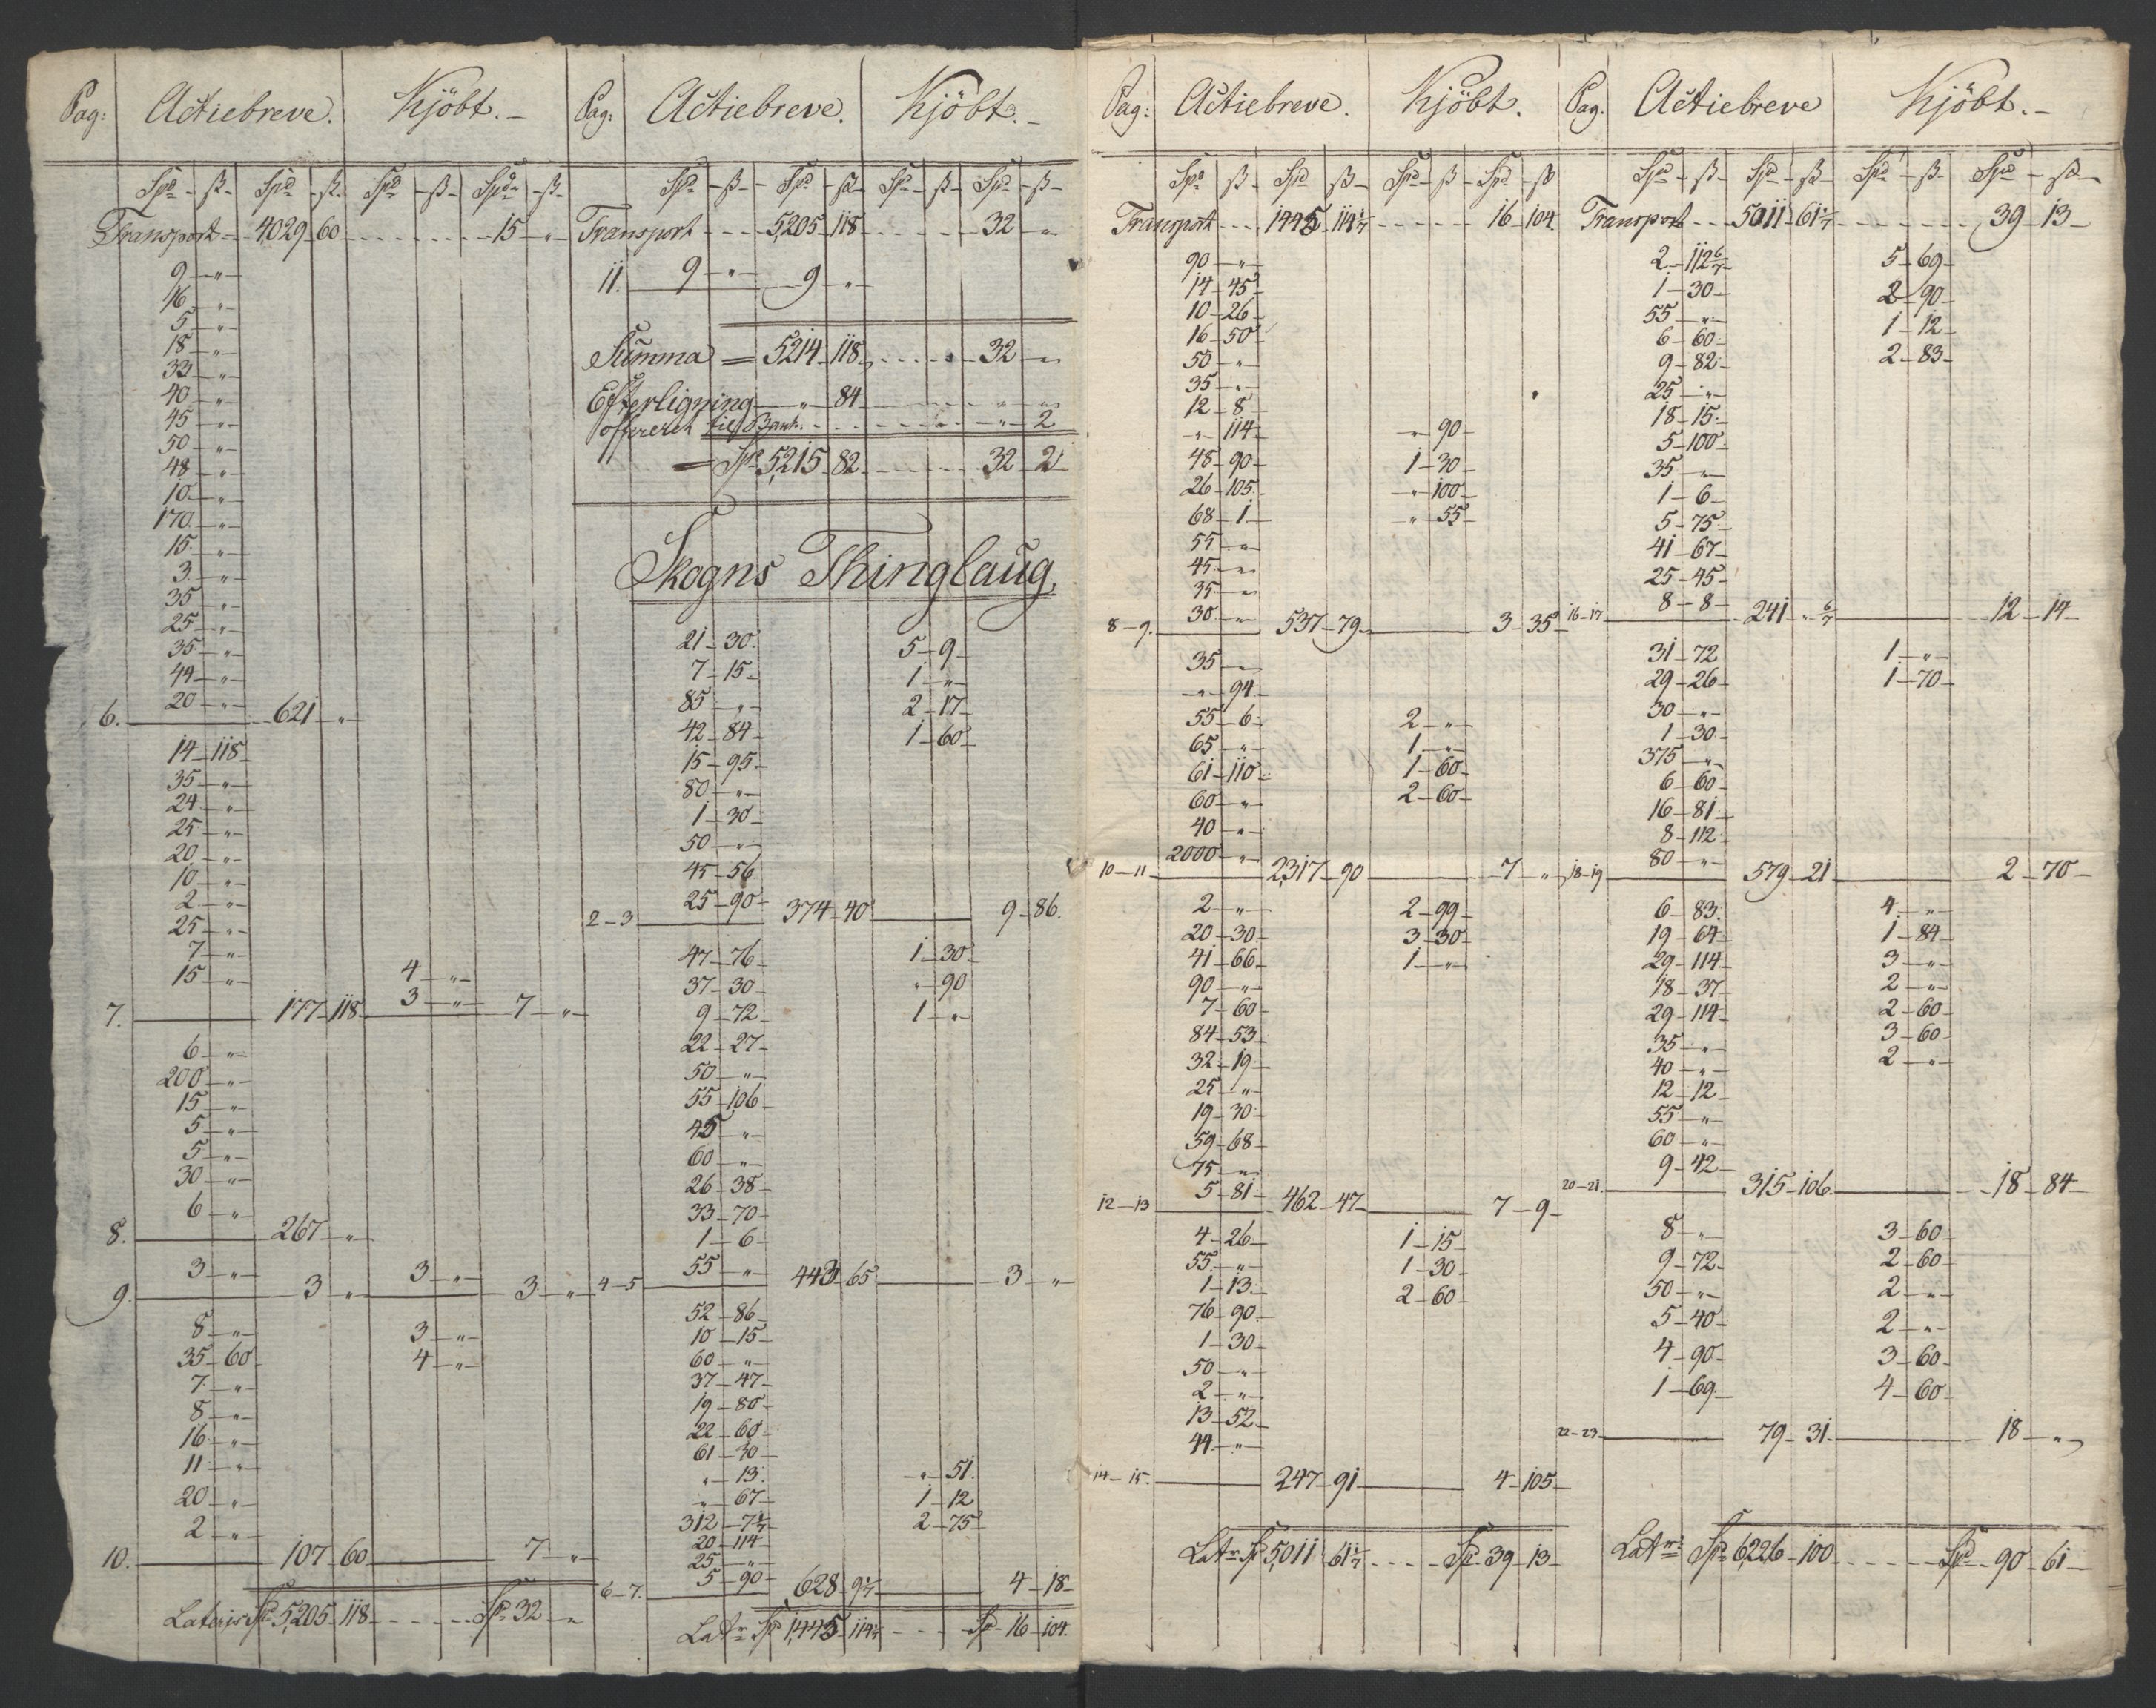 Pag: Actiebreve. Kjöbt. –
Spd – ß – Spd – ß – Spd – ß – Spd – ß –
Transport – – 4029 – 60 . . . . . . . – 15 – „ –
9 – „ –
46 – „ –
5 – „ –
18 – „ –
33 – „ –
40 – „ –
45 – „ –
50 – „ –
48 – „ –
10 – „ –
170 – „ –
15 – „ –
3 – „ –
35 – „ –
25 – „ –
35 – „ –
44 – „ –
20 – „ –
6. 621 – „ –
14 – 118 –
35 – „ –
24 – „ –
25 – „ –
20 – „ –
10 – „ –
2 – „ –
25 – „ –
7 – „ –
15 – „ – 4 – „ –
7. 177 – 118 3 – „ – 7 – „ –
6 – „ –
200 – „ –
15 – „ –
5 – „ –
5 – „ –
30 – „ –
6 – „ –
8. 267 – „ –
3 – „ – 3 – „ –
9. 3 – „ 3 – „ –
8 – „ – 3 – „ –
35 – 60 4 – „ –
7 – „ –
8 – „ –
16 – „ –
11 – „ –
20 – „ –
2 – „ –
10. 107 – 60 7 – „ –
Lateris Sp 5,205 – 118 – – – – Sp 32 – „
Pag: Actiebreve. Kjöbt. –
Spd – ß – Spd – ß – Spd – ß – Spd – ß –
Transport – – – 5,205 – 118 . . . . . 32 – „
11. 9 – „ – 9 – „
Summa = 5214 – 118 . . . . 32 – „
Efterligning – „ – 84
offereret til Bank. . . . . . – „ – 2
= Spd 5,215 – 82 – – – 32 – 2
Skogns Thinglaug.
21 – 30 5 – 9 –
7 – 15 – 1 – „ –
85 – „ – 2 – 17 –
42 – 84 – 1 – 60 –
15 – 95 –
80 – „ –
1 – 30 –
50 – „ –
45 – 56
25 – 90 –
2 – 3 374 – 40 9 – 86.
47 – 76 – 1 – 30 –
37 – 30 – „ – 90
9 – 72 – 1 – „ –
22 – 27 –
50 – „ –
55 – 106 –
45 – „ –
60 – „ –
26 – 38 –
33 – 70 –
1 – 6 –
55 – „ –
4 – 5 443 – 65 3 – „
52 – 86 –
10 – 15 –
60 – „ –
37 – 47 –
19 – 80 –
22 – 60 –
61 – 30 –
„ – 13. – „ – 51.
„ – 67 – 1 – 12
312 – 7 1/7 2 – 75
20 – 114 –
25 – „ –
5 – 90 –
6 – 7. 628 – 9 1/7 4 – 18 –
Latr Spd 1,445 – 114 1/7 – – – Sp 16 – 104.
Pag: Actiebreve. Kjöbt.
Spd ß – Spd ß – Spd – ß – Spd – ß
Transport – – – 1445 – 114 1/7 – – – – 16 – 104.
90 – „ –
14 – 45
10 – 26 –
16 – 50
50 – „ –
35 – „ –
12 – 8
– „ – 114 – – „ – 90 –
48 – 90 – 1 – 30 –
26 – 105 – – „ – 100 –
68 – 1 – – „ – 55 –
55 – „ –
45 – „ –
35 – „ –
30 – „ –
8 – 9. 537 – 79 – 3 – 35 –
35 – „ –
– „ – 94 –
55 – 6 – 2 – „ –
65 – „ – 1 – „ –
61 – 110 – 1 – 60 –
60 – „ – 2 – 60 –
40 – „ –
2000 – „ –
10 – 11 2,317 – 90 7 – „
2 – „ – 2 – 99 –
20 – 30 – 3 – 30 –
41 – 66 – 1 – „ –
90 – „ –
7 – 60 –
84 – 53 –
32 – 19 –
25 – „ –
19 – 30 –
59 – 68 –
75 – „ –
5 – 81 –
12 – 13 462 – 47 7 – 9 –
4 – 26 – 1 – 15 –
55 – „ – 1 – 30 –
1 – 13. – 2 – 60 –
76 – 90 –
1 – 30 –
50 – „ –
2 – „ –
13 – 52 –
44 – „ –
14 – 15. 247 – 91 4 – 105 –
Latr Sp 5,011 61 1/7 – – – – Sp 39 – 13 –
Pag. Actiebreve Kjöbt. –
Spd – ß – Spd – ß – Spd – ß – Spd – ß –
Transport – – 5011 – 61 1/7 – – – – – 39 – 13 –
2 – 112 6/7 5 – 69 –
1 – 30 – 2 – 90 –
55 – „ – 1 – 12 –
6 – 60 – 2 – 83 –
9 – 82 –
25 – „ –
18 – 15 –
5 – 100 –
35 – „ –
1 – 6 –
5 – 75 –
41 – 67 –
25 – 45 –
8 – 8 –
16 – 17 241 – „ 6/7 12 – 14 –
31 – 72 1 – „ –
29 – 26 – 1 – 70 –
30 – „ –
1 – 30 –
375 – „ –
6 – 60 –
16 – 81 –
8 – 112
80 – „ –
18 – 19 579 – 21 2 – 70 –
6 – 83. 4 – „ –
19 – 64 – 1 – 84 –
29 – 114 – 3 – „ –
18 – 37 – 2 – „ –
29 – 114 – 2 – 60 –
35 – „ – 3 – 60 –
40 – „ – 2 – „ –
12 – 12 –
55 – „ –
60 – „ –
9 – 42 –
20 – 21. 315 – 106 18 – 84 –
8 – „ – 3 – 60 –
9 – 72 – 2 – 60 –
50 – „ – 2 – „ –
5 – 40 – 2 – „ –
4 – 90 – 3 – 60 –
1 – 69 – 4 – 60 –
22 – 23 79 – 31 18 – „
Latr: Spd 6,226 – 100 . . . . . Spd – 90 – 61 –